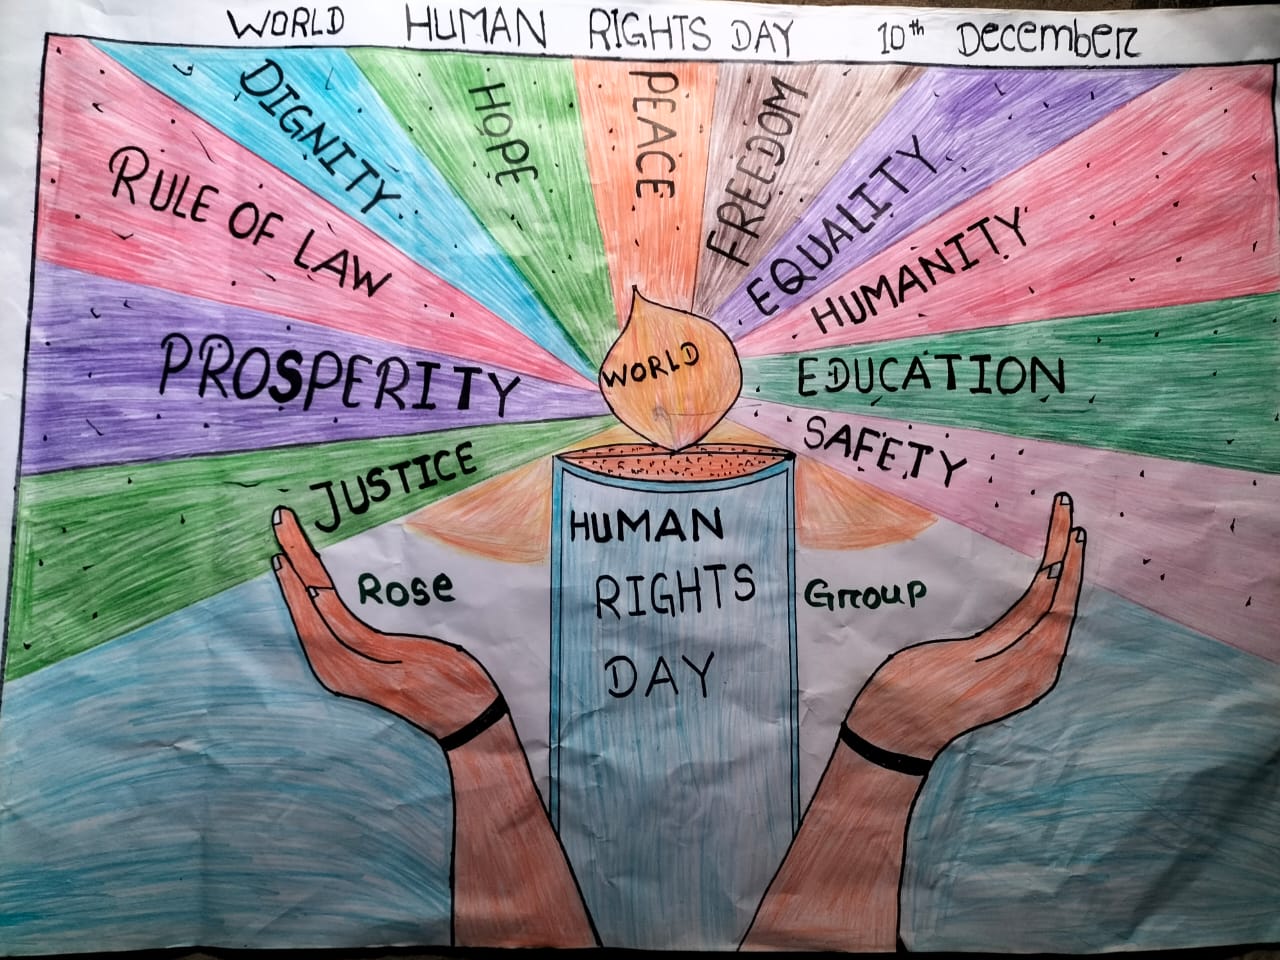 WORLD HUMAN RIGHTS DAY 10th December
JUSTICE
PROSPERITY
RULE OF LAW
DIGNITY
HOPE
PEACE
FREEDOM
EQUALITY
HUMANITY
EDUCATION
SAFETY
WORLD
HUMAN
RIGHTS
DAY
Rose Group